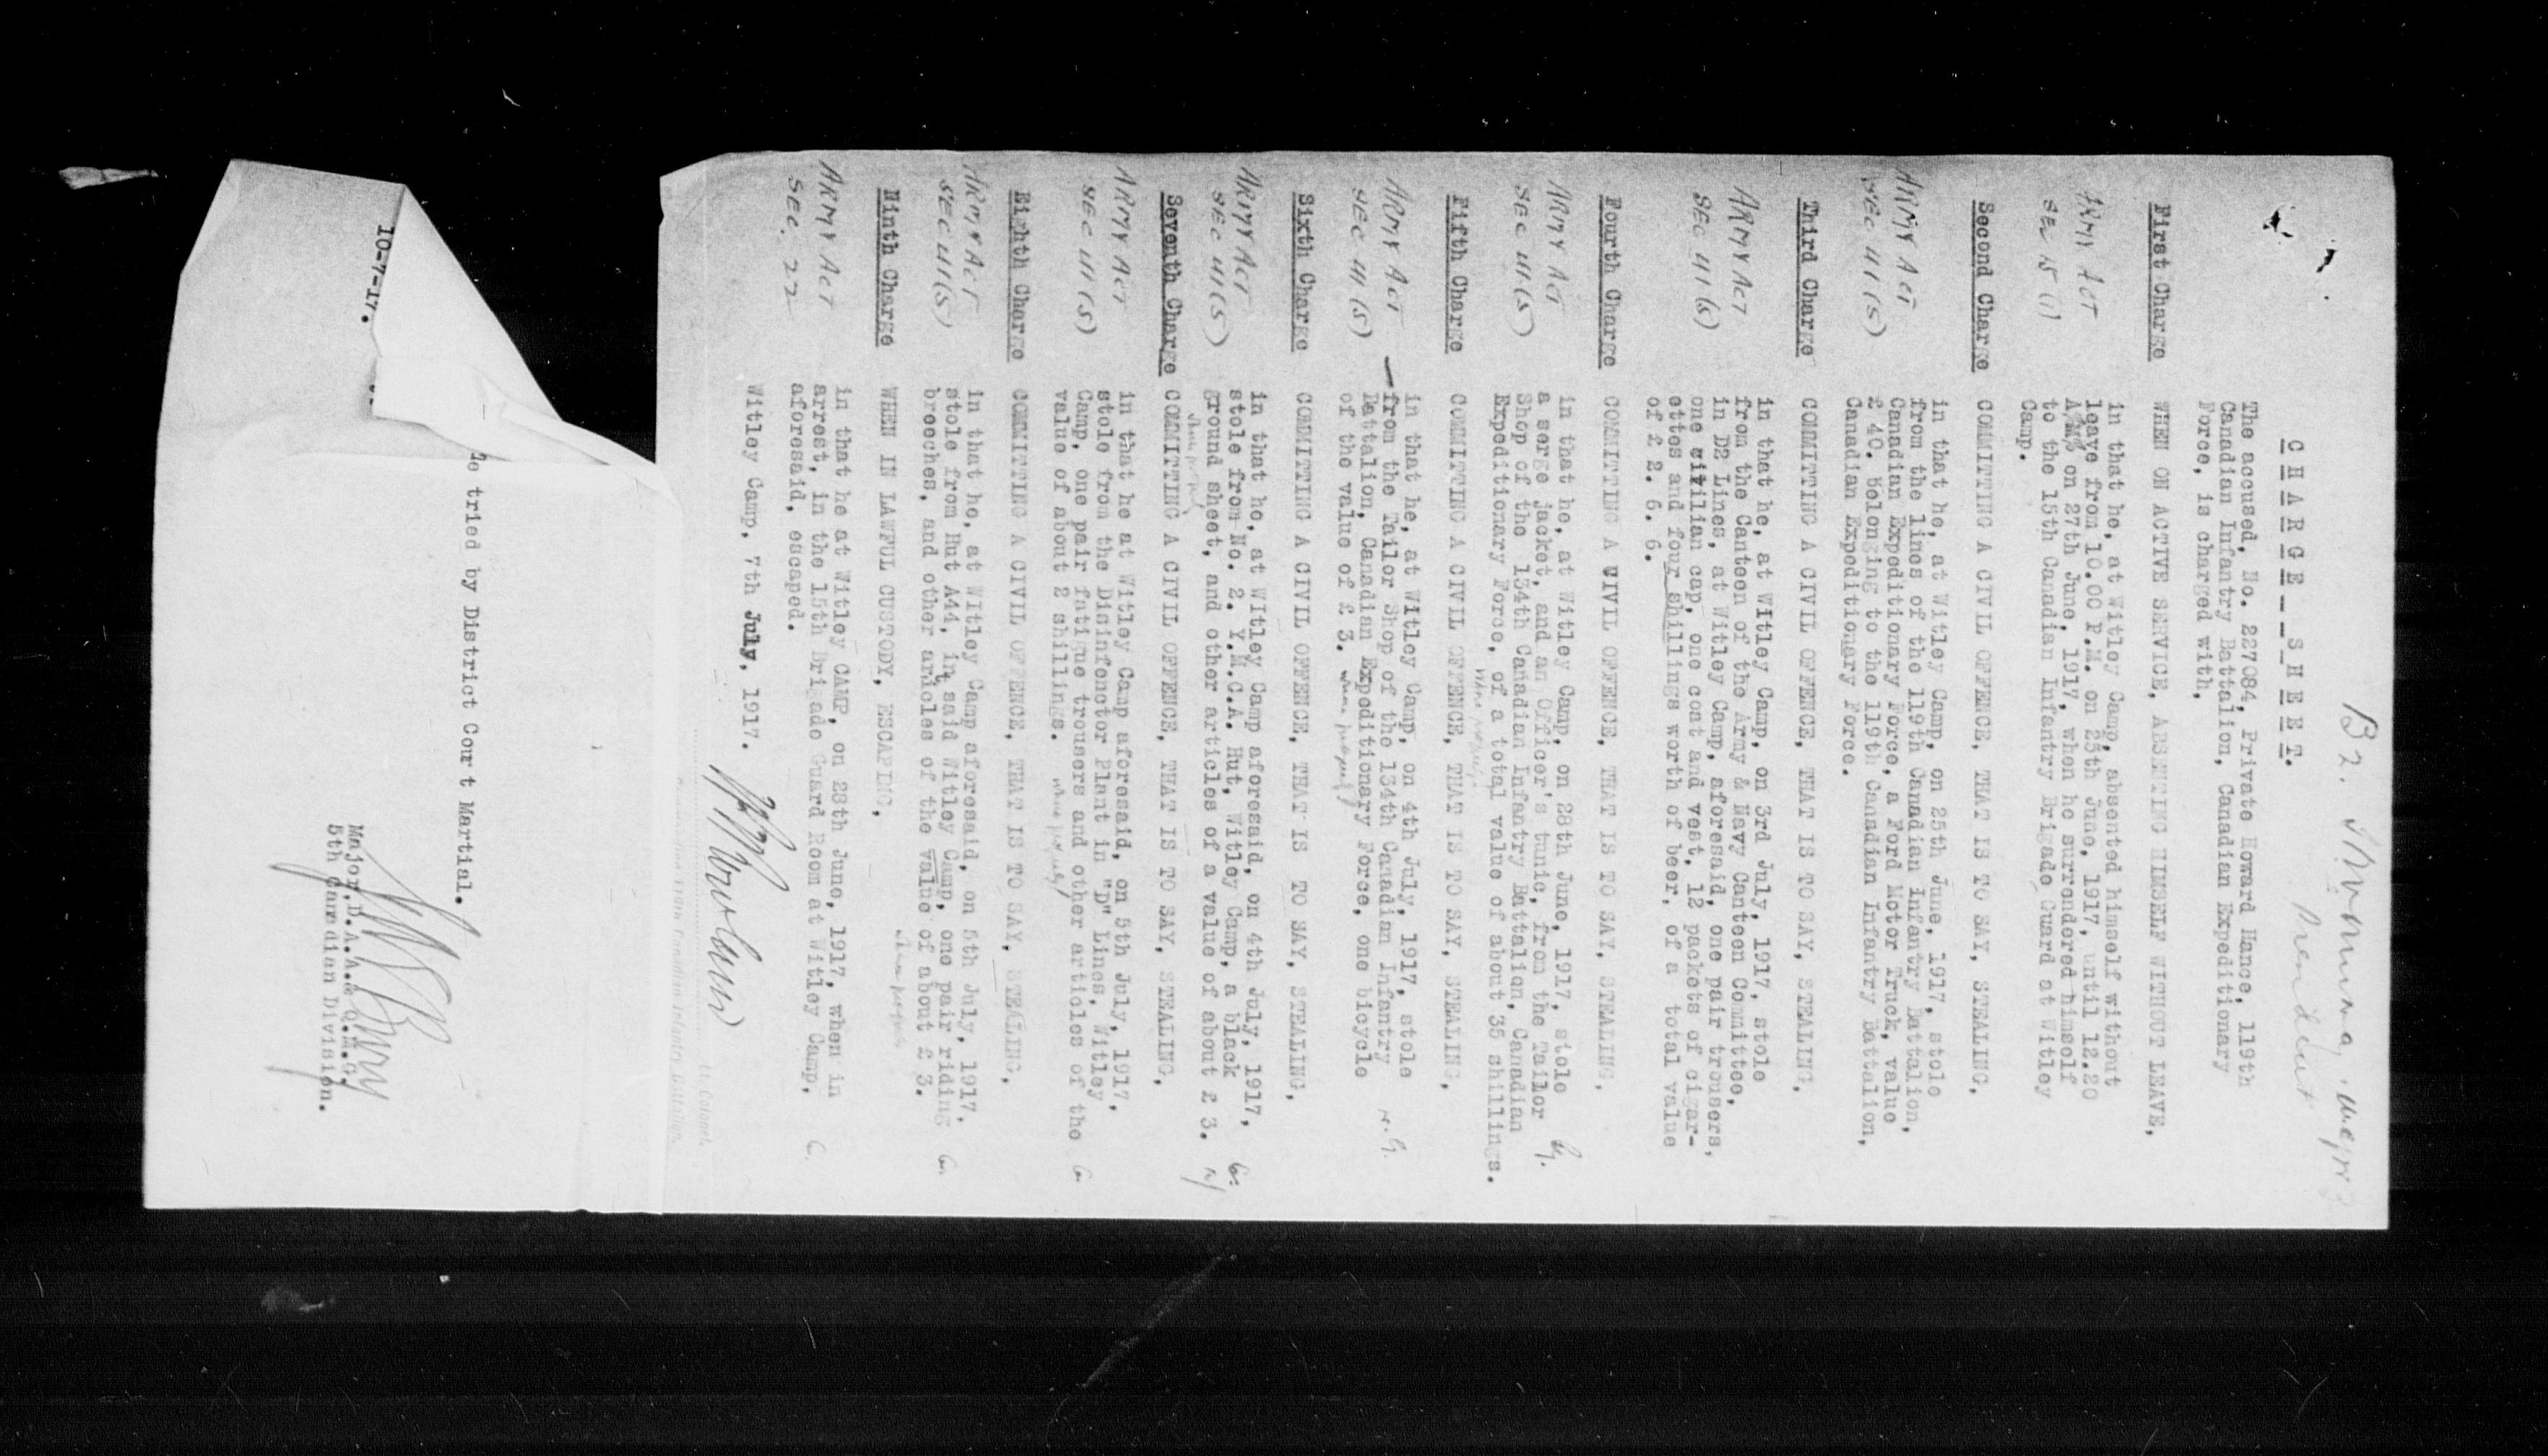 B2.
President
C H A R G E _ _ S H E E T.
The accused, No. 227084, Private Howard Hance, 119th
Canadian Infantry Battalion, Canadian Expeditionary
Force, is charged with,
First Charge WHEN ON ACTIVE SERVICE, ABSENTING HIMSELF WITHOUT LEAVE,
ARMY ACT
SEC 15 (1)
in that he, at Witley Camp, absented himself without
leave from 10.00 P.M. on 25th June, 1917, until 12.20
A.M. on 27th June, 1917, when he surrendered himself
to the 15th Canadian Infantry Brigade Guard at Witley
Camp.
Second Charge COMMITTING A CIVIL OFFENCE, THAT IS TO SAY, STEALING,
ARMY ACT
SEC 41 (5)
in that he, at Witley Camp, on 25th June, 1917, stole
from the lines of the 119th Canadian Infantry Battalion,
Canadian Expeditionary Force, a Ford Motor Truck, value
£ 40. belonging to the 119th Canadian Infantry Battalion,
Canadian Expeditionary Force.
Third Charge COMMITTING A CIVIL OFFENCE, THAT IS TO SAY, STEALING,
ARMY ACT
SEC 41 (5)
in that he, at WItley Camp, on 3rd July, 1917, stole
from the Canteen of the Army & Navy Canteen Committee,
in D2 Lines, at Witley Camp, aforesaid, one pair trousers,
one civilian cap, one coat and vest, 12 packets of cigar-
ettes and four shillings worth of beer, of a total value
of £ 2. 6. 6.
Fourth Charge COMMITTING A CIVIL OFFENCE, THAT IS TO SAY, STEALING,
ARMY ACT
SEC 41(5)
in that he, at Witley Camp, on 28th June, 1917, stole
a serge jacket, and an Officer's tunic, from the Tailor
Shop of the 134th Canadian Infantry Battalion, Canadian
Expeditionary Force, of a total value of about 35 shillings.
Fifth Charge COMMITTING A CIVIL OFFENCE, THAT IS TO SAY, STEALING,
ARMY ACT
SEC 41 (5)
in that he, at Witley Camp, on 4th July, 1917, stole
from the Tailor Shop of the 134th Canadian Infantry
Battalion, Canadian Expeditionary Force, one bicycle
of the value of £ 3.
Sixth Charge COMMITTING A CIVIL OFFENCE, THAT IS TO SAY, STEALING,
ARMY ACT
SEC 41(5)
in that he, at Witley Camp aforesaid, on 4th July, 1917,
stole from No. 2. Y.M.C.A. Hut, Witley Camp, a black
ground sheet, and other articles of a value of about £ 3.
Seventh Charge COMMITTING A CIVIL OFFENCE, THAT IS TO SAY, STEALING,
ARMY ACT
SEC 41 (5)
in that he at Witley Camp aforesaid, on 5th July, 1917,
stole from the Disinfenctor Plant in "D" Lines, Witley
Camp, one pair fatigue trousers and other articles of the
value of about 2 shillings.
Eighth Charge COMMITTING A CIVIL OFFENCE, THAT IS TO SAY, STEALING,
ARMY ACT
SEC 41(5)
in that he, at WItley Camp aforesaid, on 5th July, 1917,
stole from Hut A44, in said Witley Camp, one pair riding
breeches, and other aricles of the value of about £ 3.
Ninth Charge WHEN IN LAWFUL CUSTODY, ESCAPING,
ARMY ACT
SEC. 22
in that he at Witley CAMP, on 28th June, 1917, when in
arrest, in the 15th Brigade Guard Room at Witley Camp,
aforesaid, escaped.
Witley Camp, 7th July, 1917.
Lt Colonel.
Commanding 119th Canadian Infantry Battalion.
tried by District Court Martial.
10-7-17.
Major, D.A.A.& Q.M.G.
5th Canadian Division.